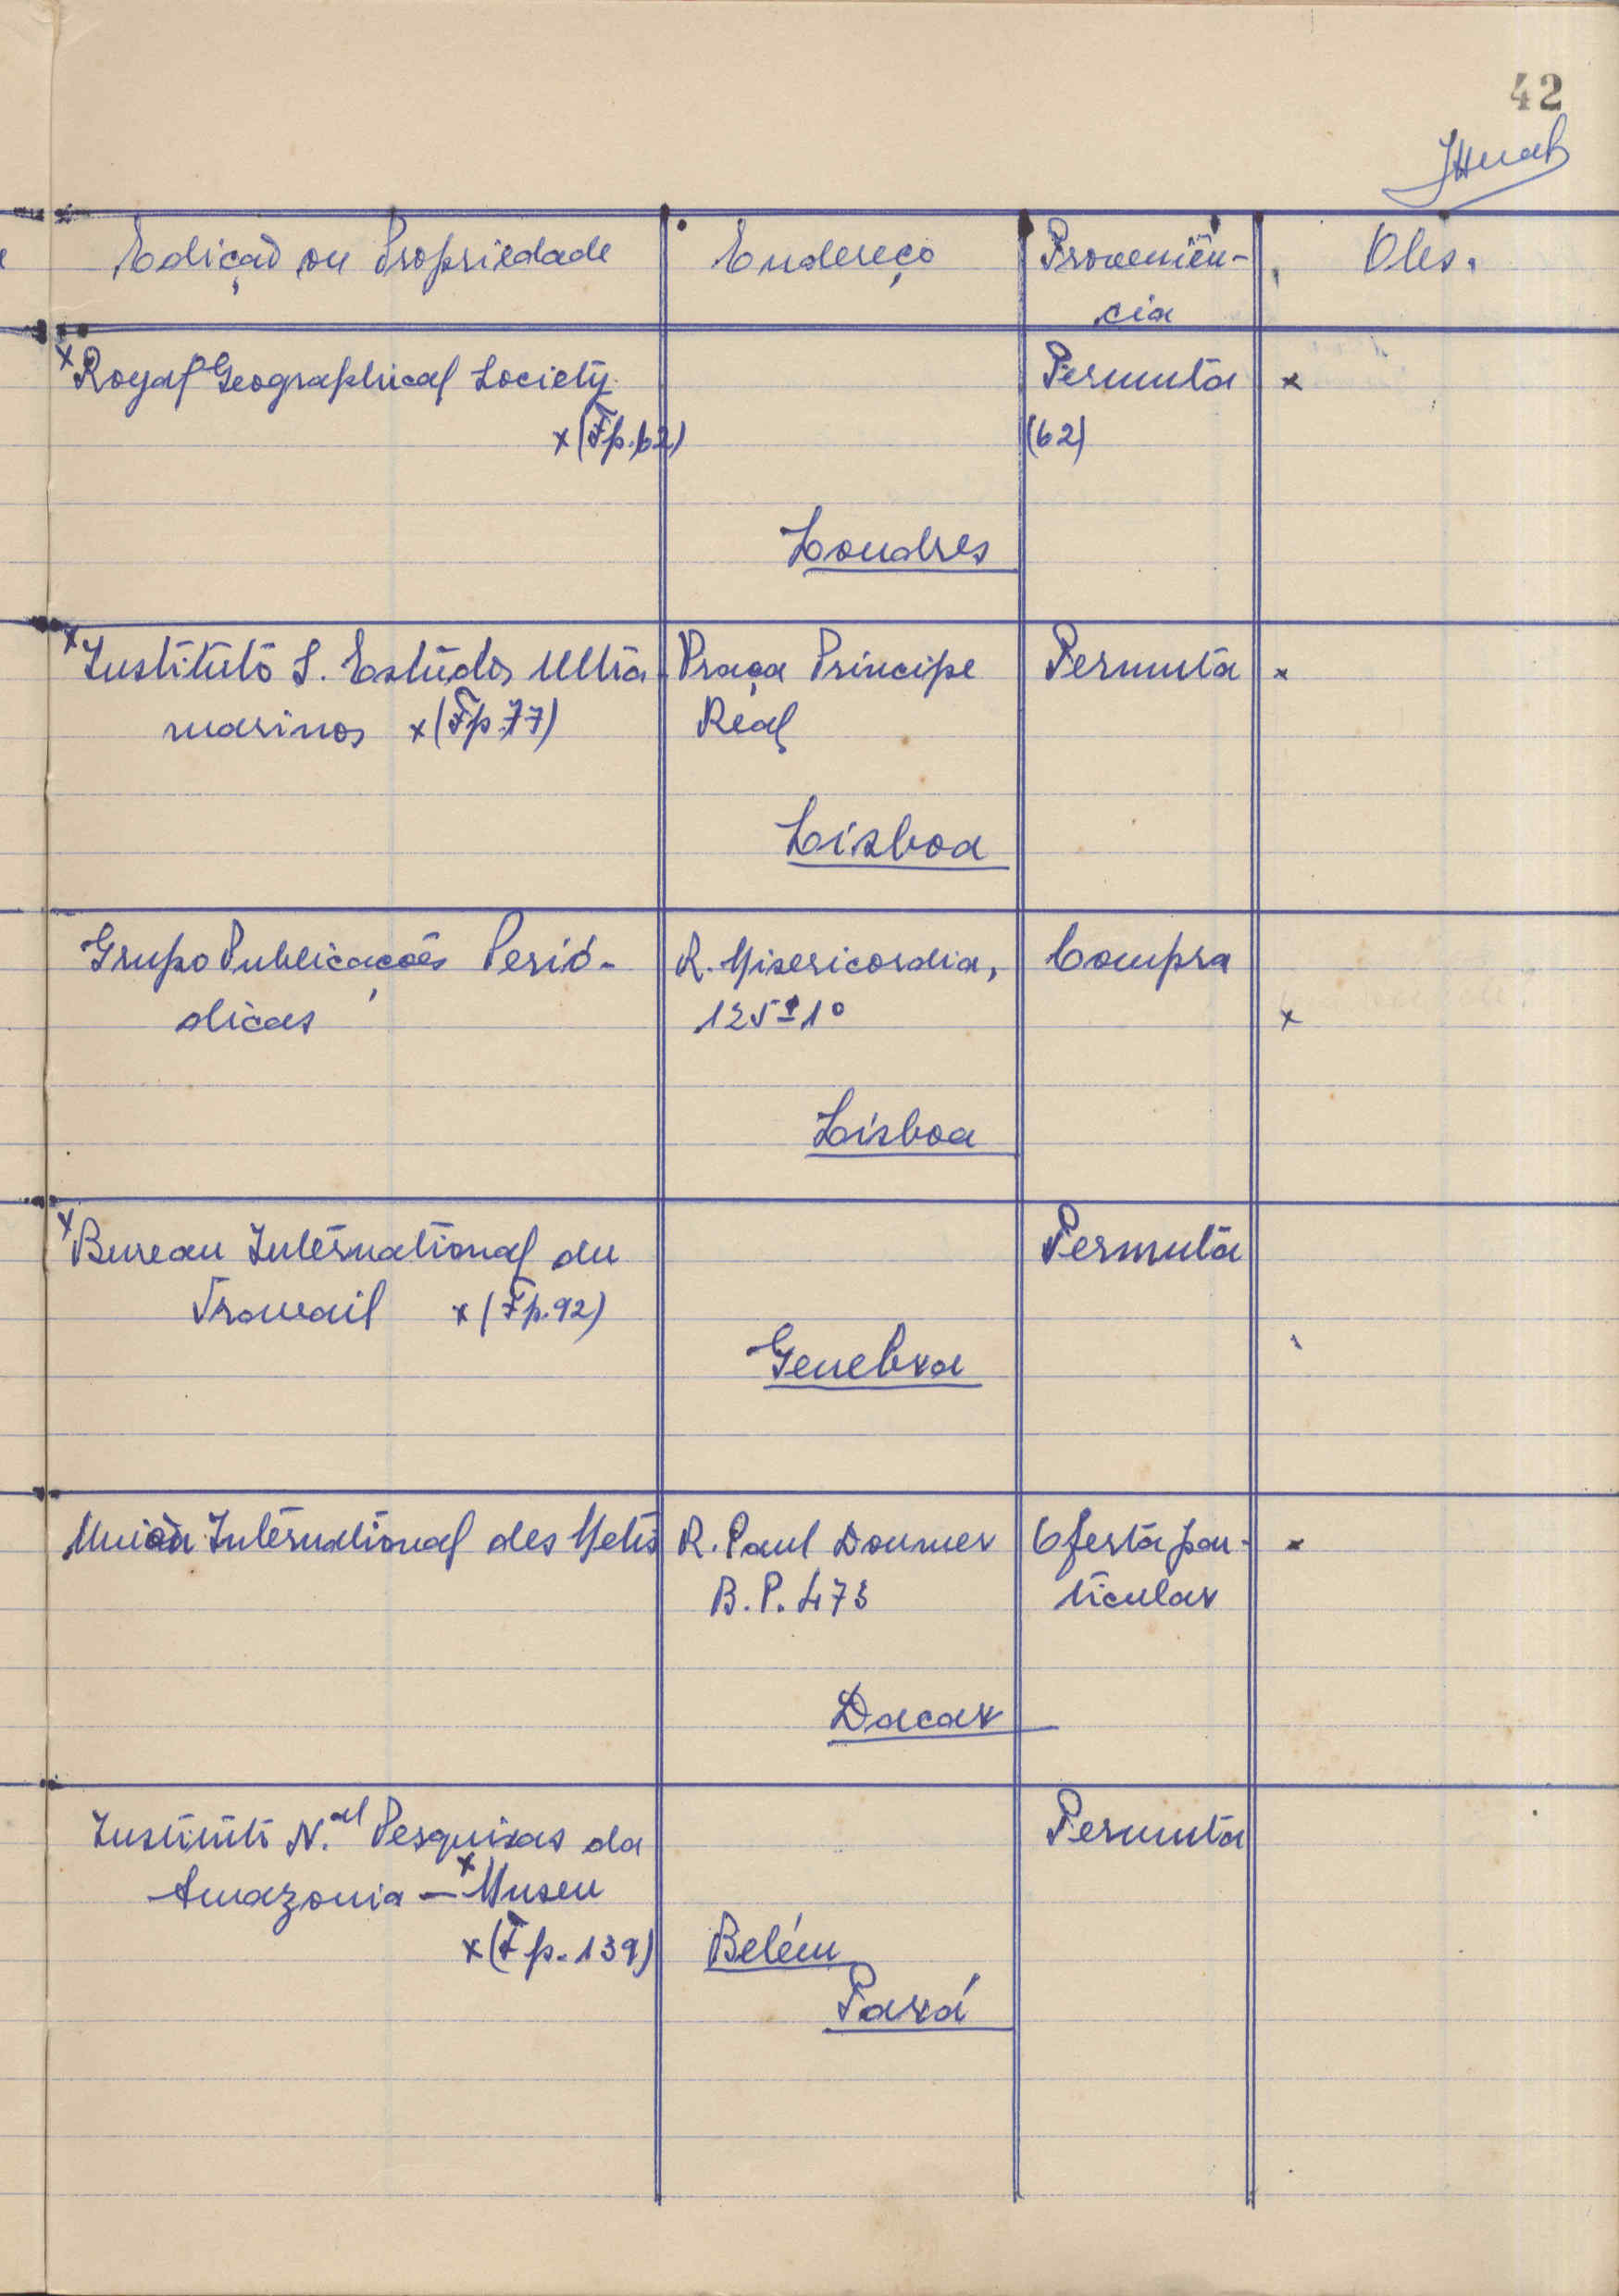 42
Edição ou Propriedade Endereço Proveniên- Obs.
cia
x Royal Geographical Society Permuta x
x (Fp. 62) (62)
Londres
x Instituto S. Estudos Ultra- Praça Principe Permuta x
marinos x (Fp. 77) Real
Lisboa
Grupo Publicações Perió- R. Misericordia, Compra
dicas 125 1º x
Lisboa
x Bureau International du Permuta
Travail x (Fp. 92)
Genebra
Union International des Metis R. Paul Doumer Oferta par- x
B.P. 473 ticular
Dacar
Instituto N.al Pesquisas da Permuta
Amazonia — x Museu
x (Fp. 139) Belém
Pará